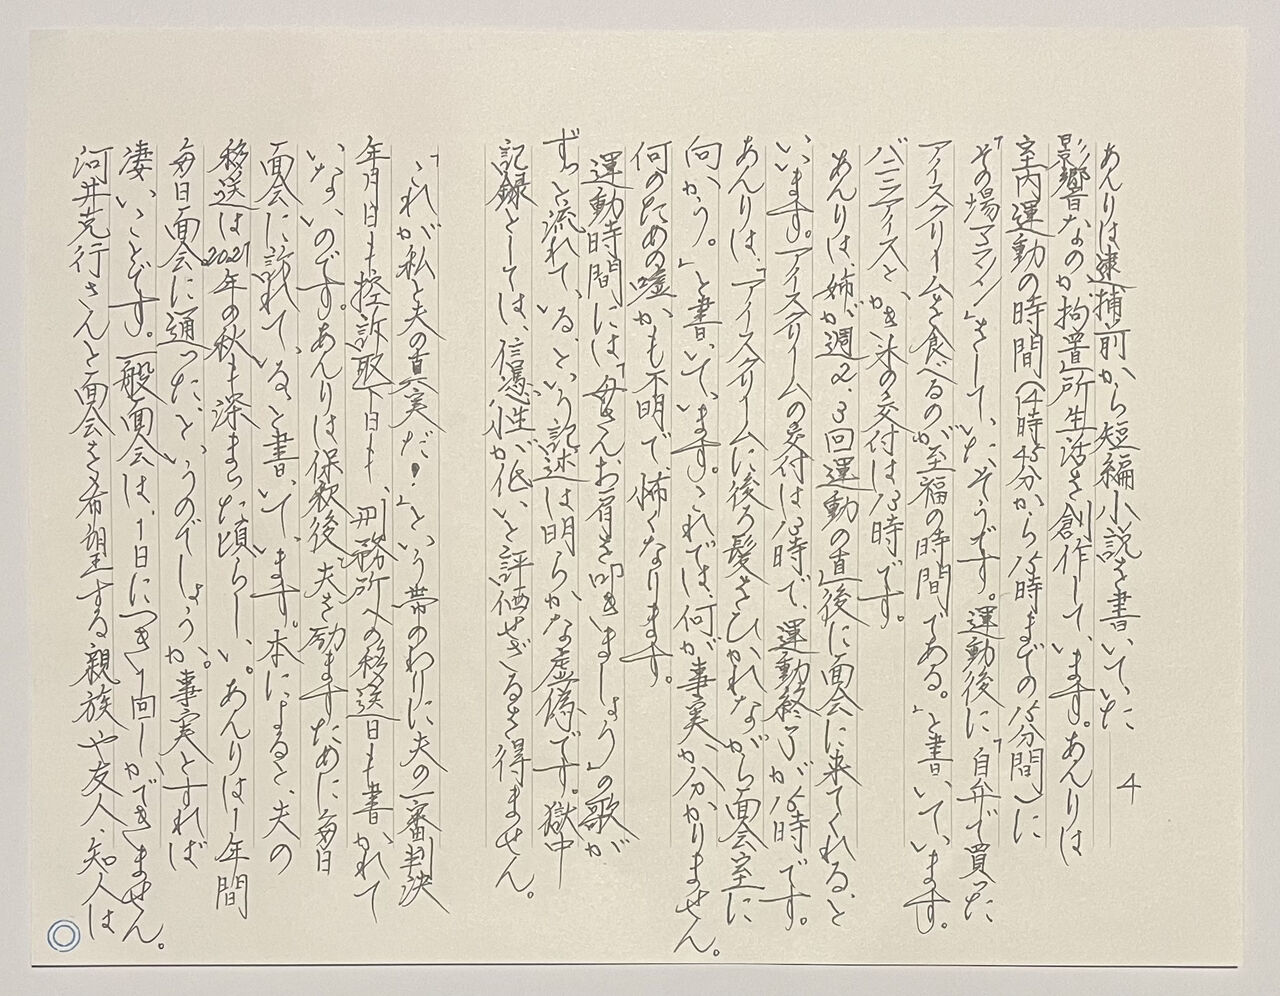 4
あんりは逮捕前から短編小説を書いていた
影響なのか拘置所生活を創作しています。あんりは
室内運動の時間(14時45分から15時までの15分間)に
「その場マラソン」をしていたそうです。運動後に「自弁で買った
アイスクリームを食べるのが至福の時間である。」と書いています。
バニラアイスとかき氷の交付は13時です。
あんりは、姉が週2、3回運動の直後に面会に来てくれると
います。アイスクリームの交付は13時で、運動終了が15時です。
あんりは、「アイスクリームに後ろ髪をひかれながら面会室に
向かう。」と書いています。これでは、何が事実か分かりません。
何のための嘘かも不明で怖くなります。
運動時間には「母さんお肩を叩きましょう」の歌が
ずっと流れている、という記述は明らかな虚偽です。獄中
記録としては、信憑性が低いと評価せざるを得ません。
「これが私と夫の真実だ!」という帯のわりに夫の一審判決
年月日も控訴取下日も、刑務所への移送日も書かれて
いないのです。あんりは保釈後、夫を励ますために毎日
面会に訪れていると書いています。本によると、夫の
移送は2021年の秋も深まった頃らしい。あんりは1年間
毎日面会に通ったというのでしょうか。事実とすれば
凄いことです。一般面会は、1日につき1回しかできません。
河井克行さんと面会を希望する親族や友人、知人は